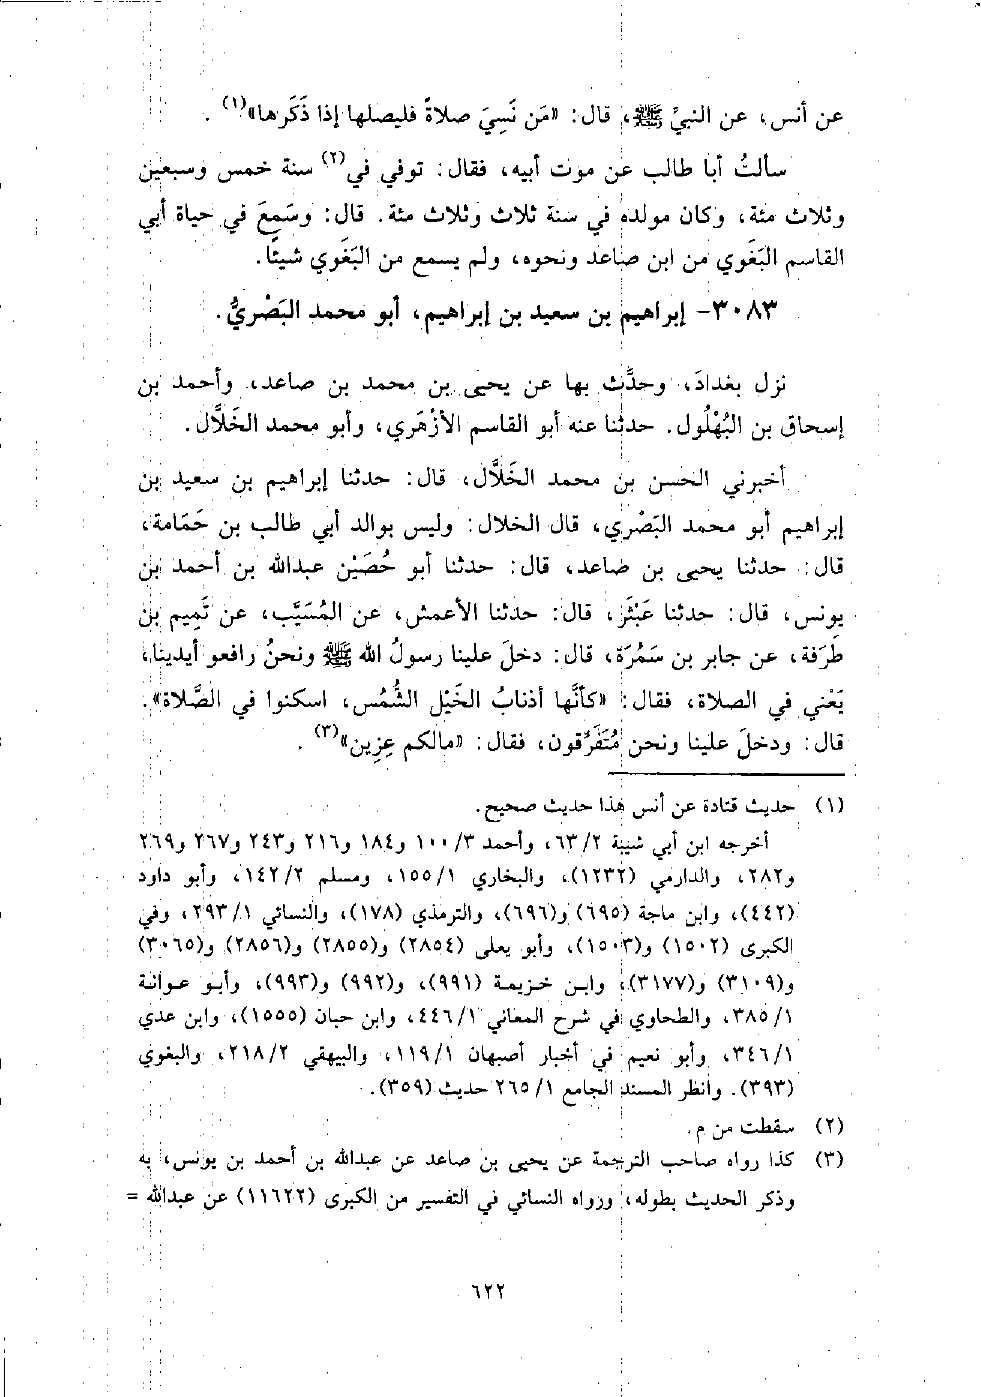 عن أنس، عن النبيِّ ﷺ، قال: «مَن نَسِيَ صلاةً فليصلها إذا ذَكَرها»(١).
سألتُ أبا طالب عن موت أبيه، فقال: توفي في(٢) سنة خمس وسبعين
وثلاث مئة، وكان مولده في سنة ثلاث وثلاث مئة. قال: وسَمِعَ في حياة أبي
القاسم البَغَوي من ابن صاعد ونحوه، ولم يسمع من البَغَوي شيئًا.
٣٠٨٣- إبراهيم بن سعيد بن إبراهيم، أبو محمد البَصْريُّ.
نزل بغدادَ، وحدَّث بها عن يحيى بن محمد بن صاعد، وأحمد بن
إسحاق بن البُهْلُول. حدثنا عنه أبو القاسم الأزْهَري، وأبو محمد الخَلَّال.
أخبرني الحسن بن محمد الخَلَّال، قال: حدثنا إبراهيم بن سعيد بن
إبراهيم أبو محمد البَصْري، قال الخلال: وليس بوالد أبي طالب بن حَمَامة،
قال: حدثنا يحيى بن صاعد، قال: حدثنا أبو حُصَيْن عبدالله بن أحمد بن
يونس، قال: حدثنا عَبْثَر، قال: حدثنا الأعمش، عن المُسَيَّب، عن تَمِيم بن
طَرَفة، عن جابر بن سَمُرَة، قال: دخلَ علينا رسولُ الله ﷺ ونحنُ رافعو أيدينا،
يَعْني في الصلاة، فقال: «كأنَّها أذنابُ الخَيْل الشُّمُس، اسكنوا في الصَّلاة».
قال: ودخلَ علينا ونحن مُتَفَرِّقون، فقال: «مالكم عِزِين»(٣).
(١) حديث قتادة عن أنس هذا حديث صحيح.
أخرجه ابن أبي شيبة ٢/ ٦٣، وأحمد ٣/ ١٠٠ و١٨٤ و٢١٦ و٢٤٣ و٢٦٧ و٢٦٩
و٢٨٢، والدارمي (١٢٣٢)، والبخاري ١/ ١٥٥، ومسلم ٢/ ١٤٢، وأبو داود
(٤٤٢)، وابن ماجة (٦٩٥) و(٦٩٦)، والترمذي (١٧٨)، والنسائي ١/ ٢٩٣، وفي
الكبرى (١٥٠٢) و(١٥٠٣)، وأبو يعلى (٢٨٥٤) و(٢٨٥٥) و(٢٨٥٦) و(٣٠٦٥)
و(٣١٠٩) و(٣١٧٧)، وابن خزيمة (٩٩١)، و(٩٩٢) و(٩٩٣)، وأبو عوانة
١/ ٣٨٥، والطحاوي في شرح المعاني ١/ ٤٤٦، وابن حبان (١٥٥٥)، وابن عدي
١/ ٣٤٦، وأبو نعيم في أخبار أصبهان ١/ ١١٩، والبيهقي ٢/ ٢١٨، والبغوي
(٣٩٣). وانظر المسند الجامع ١/ ٢٦٥ حديث (٣٥٩).
(٢) سقطت من م.
(٣) كذا رواه صاحب الترجمة عن يحيى بن صاعد عن عبدالله بن أحمد بن يونس، به
وذكر الحديث بطوله، ورواه النسائي في التفسير من الكبرى (١١٦٢٢) عن عبدالله =
٦٢٢